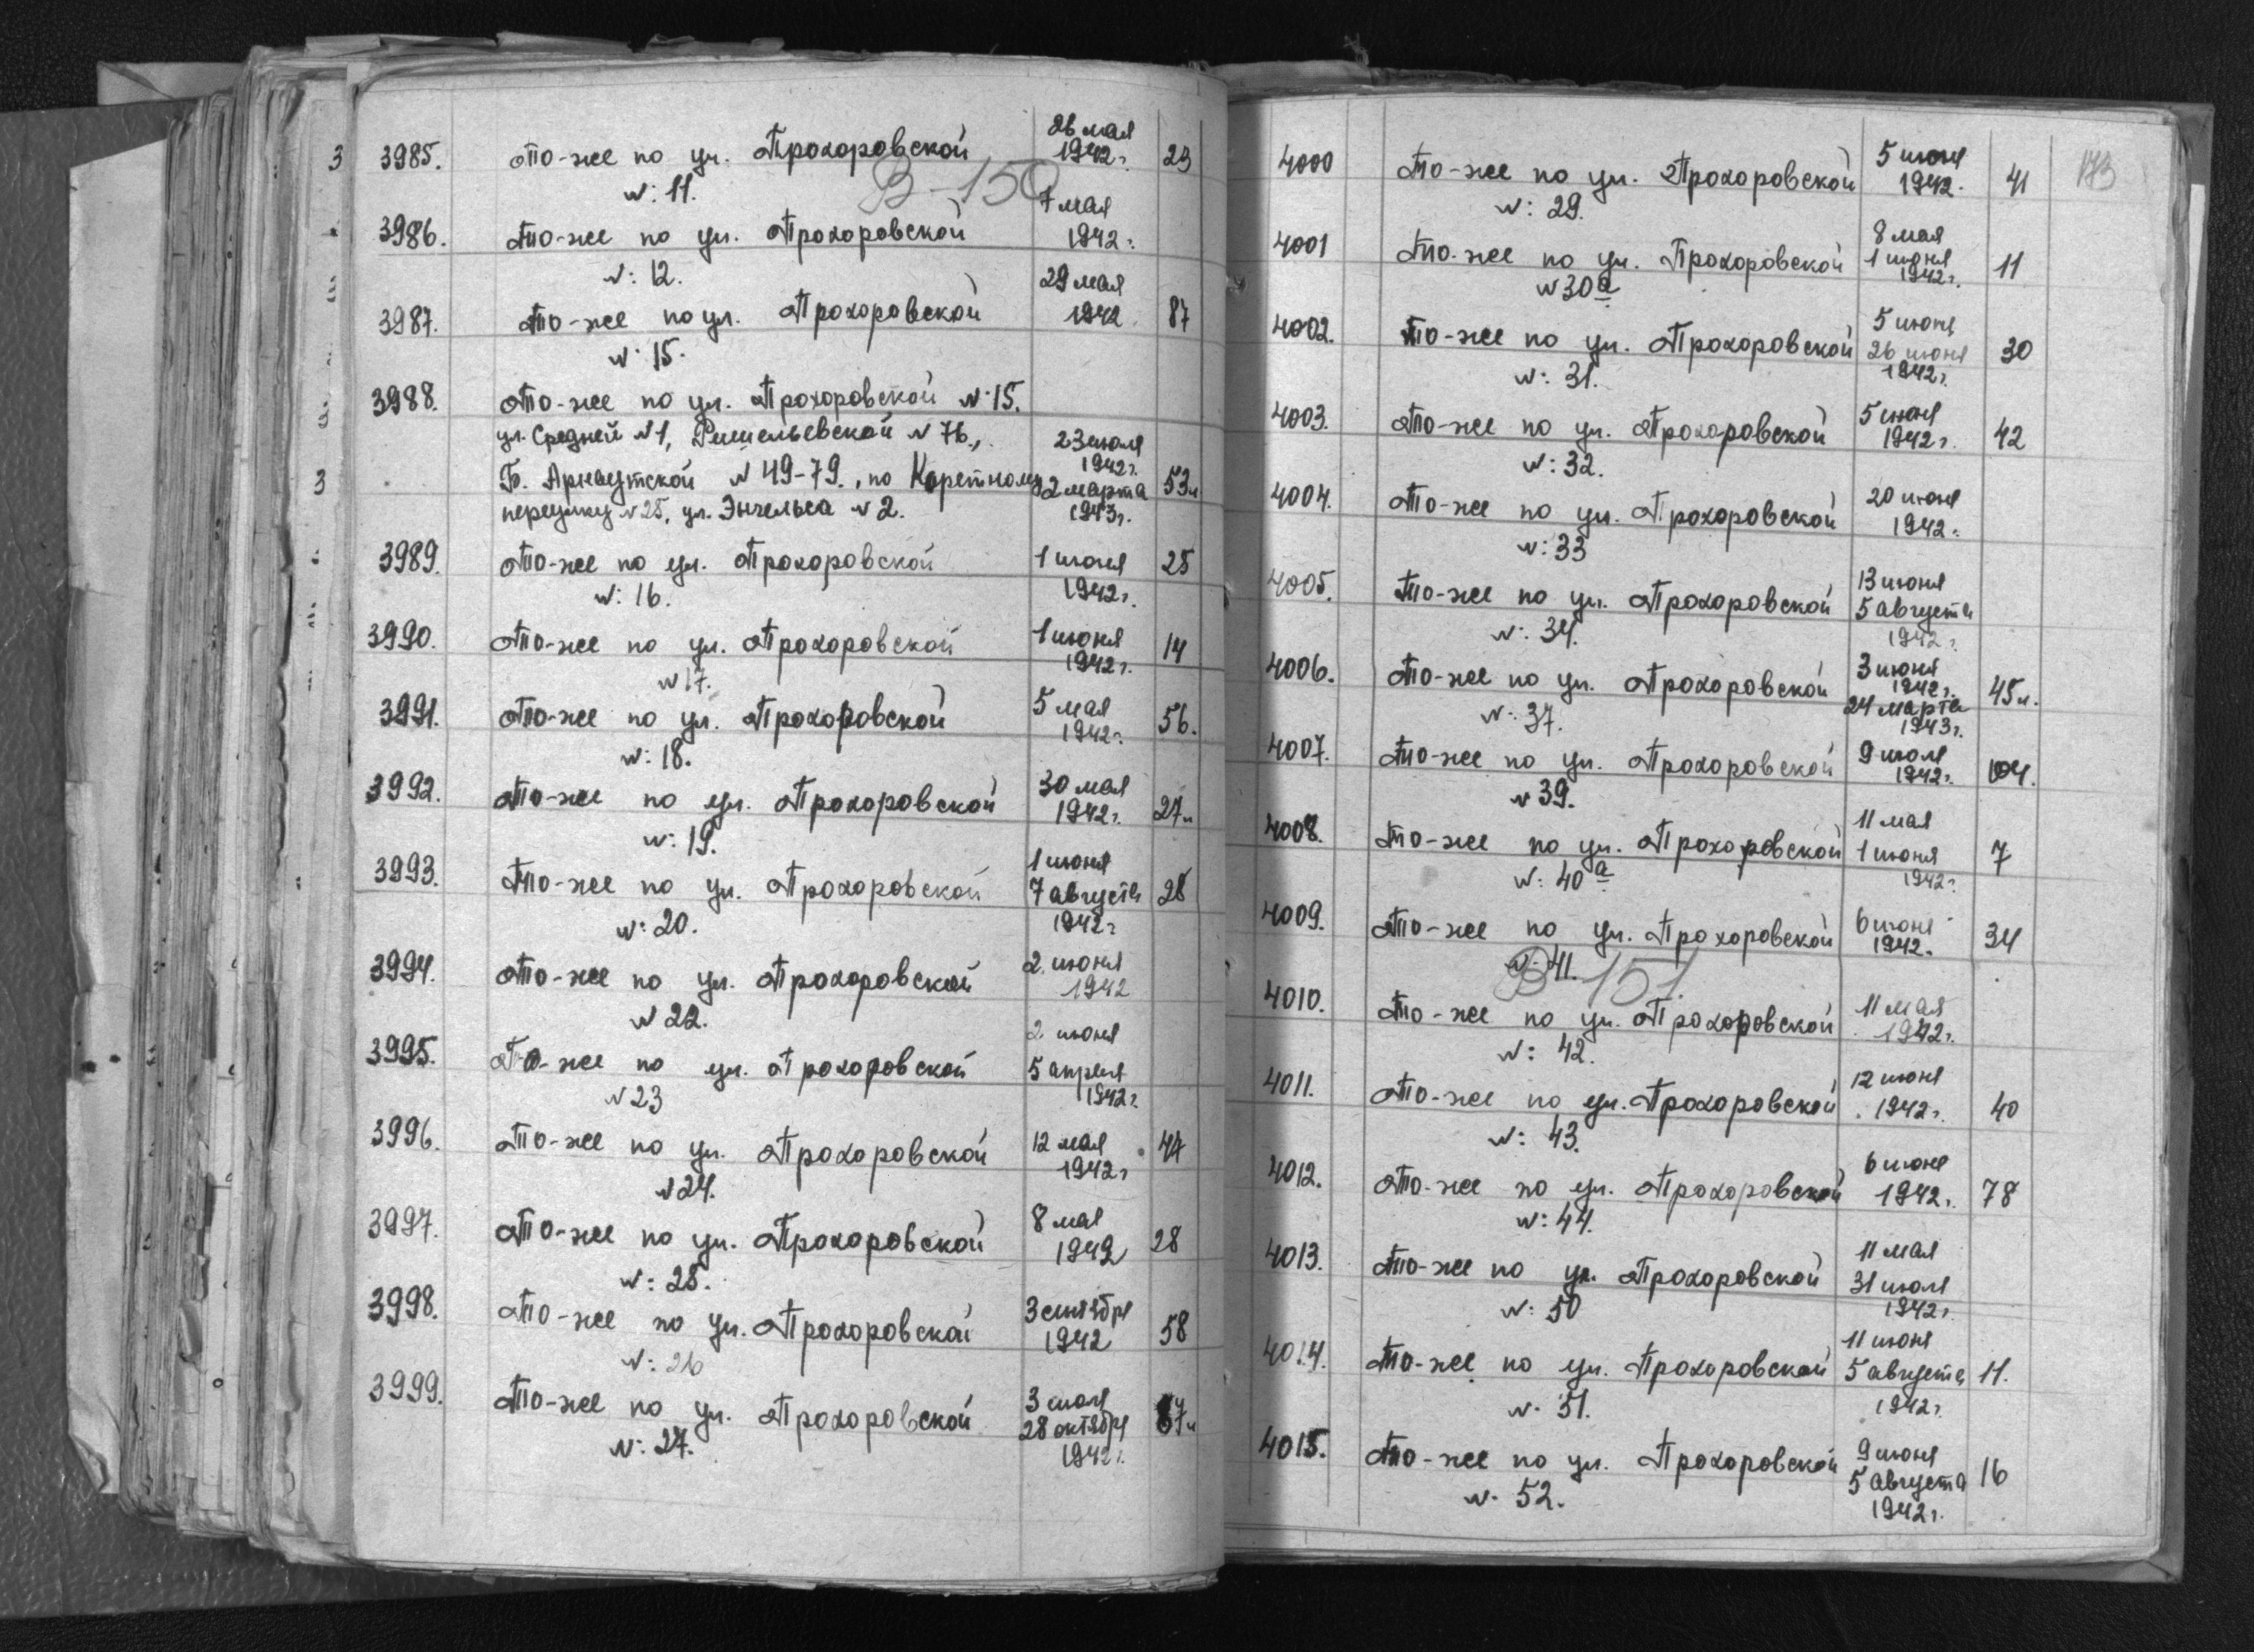 3985. То-же по ул. Прохоровской 26 мая 1942 г. 23
№: 11.
В-150
3986. То-же по ул. Прохоровской 7 мая 1942 г.
№: 12.
3987. То-же по ул. Прохоровской 29 мая 1942 87
№: 15.
3988. То-же по ул. Прохоровской №: 15.
ул. Средней №1, Ришельевской № 76.,
23 июля 1942 г.
Б. Арнаутской № 49-79., по Каретному 2 марта 1943 г. 53 л
переулку № 25, ул. Энгельса № 2.
3989. То-же по ул. Прохоровской 1 июня 1942 г. 25
№: 16.
3990. То-же по ул. Прохоровской 1 июня 1942 г. 14
№ 17.
3991. То-же по ул. Прохоровской 5 мая 1942 г. 56.
№: 18.
3992. То-же по ул. Прохоровской 30 мая 1942 г. 27 л
№: 19.
3993. То-же по ул. Прохоровской 1 июня 7 августа 1942 г. 28
№: 20.
3994. То-же по ул. Прохоровской 2 июня 1942
№ 22.
3995. То-же по ул. Прохоровской 2 июня 5 апреля 1942 г.
№ 23
3996. То-же по ул. Прохоровской 12 мая 1942 г 44
№ 24.
3997. То-же по ул. Прохоровской 8 мая 1942 28
№: 25.
3998. То-же по ул. Прохоровской 3 сентября 1942 58
№: 26
3999. То-же по ул. Прохоровской 3 июля 28 октября 1942 г.
№: 27.
173
4000 То-же по ул. Прохоровской 5 июня 1942. 41
№: 29.
4001 То-же по ул. Прохоровской 8 мая 1 июня 1942 г. 11
№ 30а
4002. То-же по ул. Прохоровской 5 июня 26 июня 1942 г. 30
№: 31.
4003. То-же по ул. Прохоровской 5 июня 1942 г. 42
№: 32.
4004. То-же по ул. Прохоровской 20 июня 1942 г.
№: 33
4005. То-же по ул. Прохоровской 13 июня 5 августа 1942 г.
№: 34.
4006. То-же по ул. Прохоровской 3 июня 1942 г. 24 марта 1943 г. 45 л.
№: 37.
4007. То-же по ул. Прохоровской 9 июля 1942 г. 104.
№ 39.
4008. То-же по ул. Прохоровской 11 мая 1 июня 1942 г. 7
№: 40а
4009. То-же по ул. Прохоровской 6 июня 1942. 34
№: 41.
В 151
4010. То-же по ул. Прохоровской 11 мая 1942 г.
№: 42.
4011. То-же по ул. Прохоровской 12 июня 1942 г. 40
№: 43.
4012. То-же по ул. Прохоровской 6 июня 1942 г. 78
№: 44.
4013. То-же по ул. Прохоровской 11 мая 31 июля 1942 г.
№: 50
4014. То-же по ул. Прохоровской 11 июня 5 августа 1942 г. 11.
№: 51.
4015. То-же по ул. Прохоровской 9 июня 5 августа 1942 г. 16
№: 52.